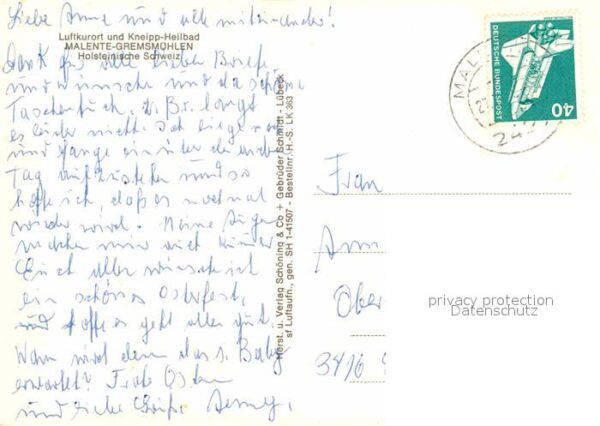 Liebe Anne und alle miteinander!
Luftkurort und Kneipp-Heilbad
MALENTE-GREMSMÜHLEN
Holsteinische Schweiz
Dank für alle lieben Briefe
und wünsche und das schöne
Taschentuch, z. Br. langt
es leider nicht. Ich liege noch
und fange an
Tag aufzustehen und so
hoffe ich, daß es noch mal
wieder wird. Meine Augen
machen mir viel Kummer
Euch allen wünsche ich
ein schönes Osterfest,
und hoffe es geht allen gut.
Wann wird denn das 1. Baby
erwartet? Frohe Ostern
und liebe Grüße
Herst. u. Verlag Schöning & Co + Gebrüder Schmidt - Lübeck
sf Luftaufn., gen. SH 1-41507 - Bestellnr. H.-S. LK 363
DEUTSCHE BUNDESPOST
40
MAL
24
Frau
Ann
Ober
3416
privacy protection
Datenschutz